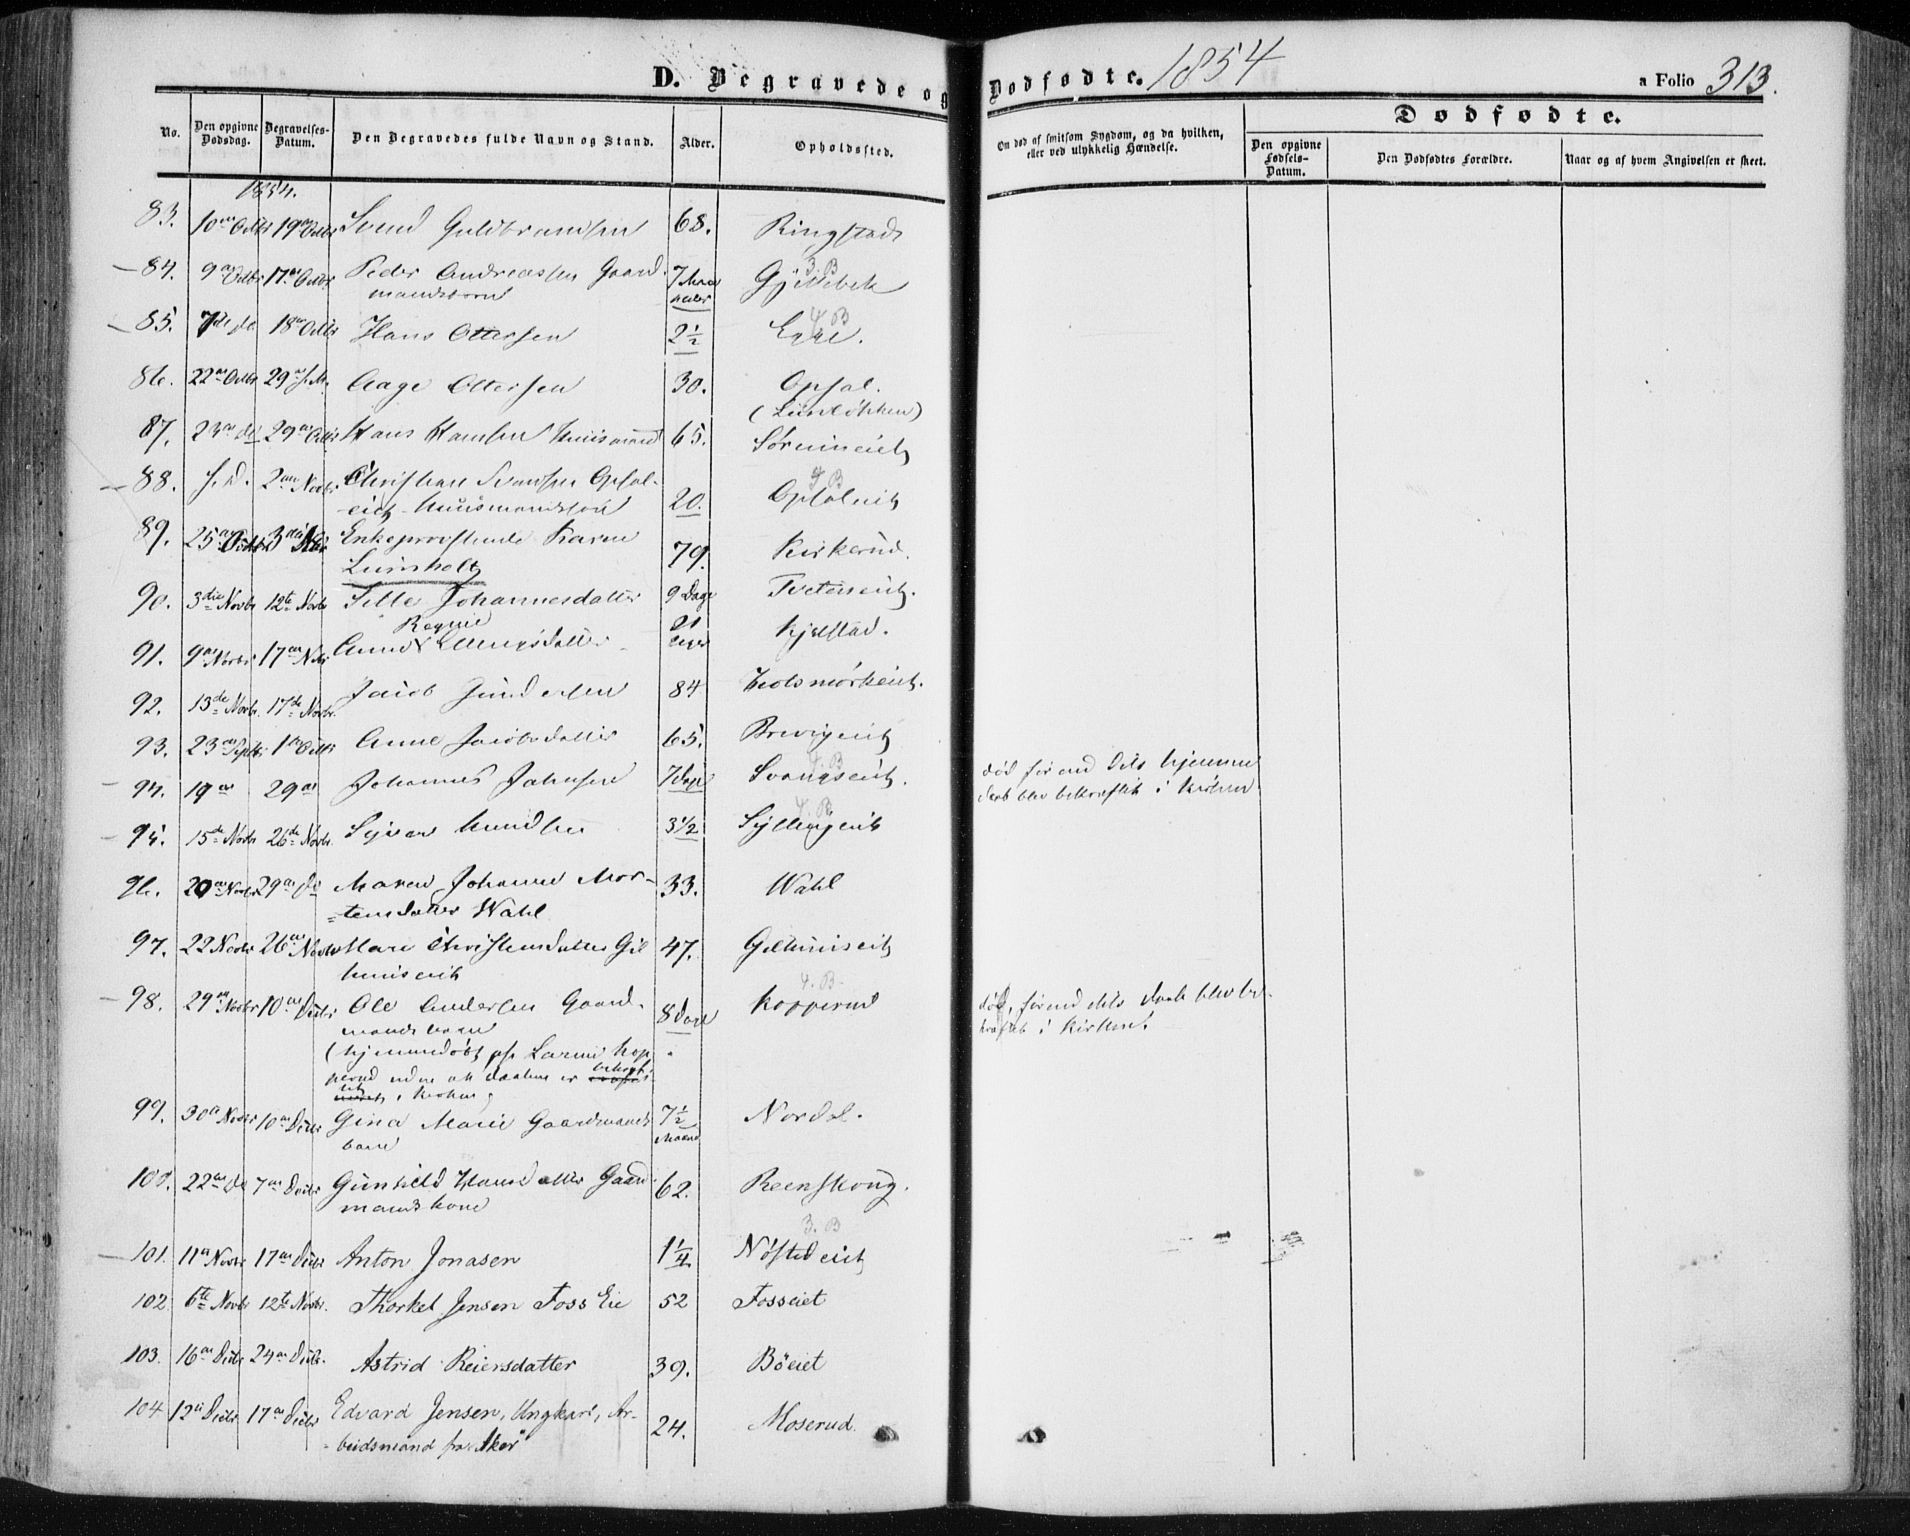 D. Begravede og Dødfødte. 1854
a Folio 313.
No.
Den opgivne Dødsdag.
Begravelses-Datum.
Den Begravedes fulde Navn og Stand.
Alder.
Opholdssted.
Om død af smitsom Sygdom, og da hvilken, eller ved ulykkelig Hændelse.
Dødfødte.
Den opgivne Fødsels-Datum.
Den Dødfødtes Forældre.
Naar og af hvem Angivelsen er skeet.
1854.
83. 10de Octbr 19de Octbr Svend Guldbrandsen 68. Ringstad
3. B
84. 9de Octbr 17de Octbr Peder Andreassen Gaard-
mandsbarn 7 Maaneder Gjellebek
4 B
85. 7de do 18de Octbr Hans Ottersen 2½ Egge.
86. 22de Octbr 29de s. M. Aage Ottersen 30. Opsal.
(Lunløkken)
87. 23de do 29de Octbr Hans Hansen Huusmand 65. Sørumeiet
4 B
88. s. D. 2den Novbr Christian Svensen Opsal-
eiet Huusmandssøn 20. Opsaleiet
89. 25de Octbr 3die Nbr Enkeprovstinde Karen
Lumholtz 79. Kirkerud.
90. 3die Novbr 12te Novbr Sille Johannesdatter 9 Dage Tveteneiet.
Ragne
91. 9de Novbr 17de Nbr Anne Ellingsdatter Kjelstad.
92. 13de Novbr. 17de Novbr. Jacob Gundersen 84 Holsmørkeiet.
93. 23de Septbr 1ste Octbr Anne Jacobsdatter 65. Brevigeiet
4. B
94. 19de 29de Johannes Johnsen 7 Dage Svangseiet.
død før end dets hjemme
daab blev bekræftet i Kirken
4. B
95. 15de Novbr 26de Novbr. Syver Knudsen 3½ Syllingeiet
96. 20de Novbr 29de do Maren Johanne Mor-
tensdatter Wahl 33. Wahl
97. 22 Novbr 26de Novbr Mari Christensdatter Gil
huuseiet 47. Gilhuuseiet
4. B.
98. 29de Novbr 10de Decbr Ole Andersen Gaard-
mandsbarn 8 Dage Kopperud
død, førend dets Daab blev be-
kræftet i Kirken.
(hjemmedøbt af Lærer Kop
perud uden at Daaben er bekræf-
tet i Kirken)
99. 30te Novbr 10de Decbr Gina Marie Gaardmands
barn 7½ Maaned Nordal.
100. 22de do 7de Decbr Gunhild Hansdatter Gaard
mandskone 62. Reenskoug.
3. B
101. 11te Novbr 17de Decbr Anton Jonasen 1¼ Nøstedeiet
102. 6te Novbr 12te Novbr. Thorkel Jensen Foss Eie 52 Fosseiet
103. 16de Decbr 24de Decbr. Astrid Reiersdatter 39. Bøeiet
104 12te Decbr 17de Decbr Edvard Jensen, Ungkarl, Ar-
beidsmand fra Aker 24. Moserud.